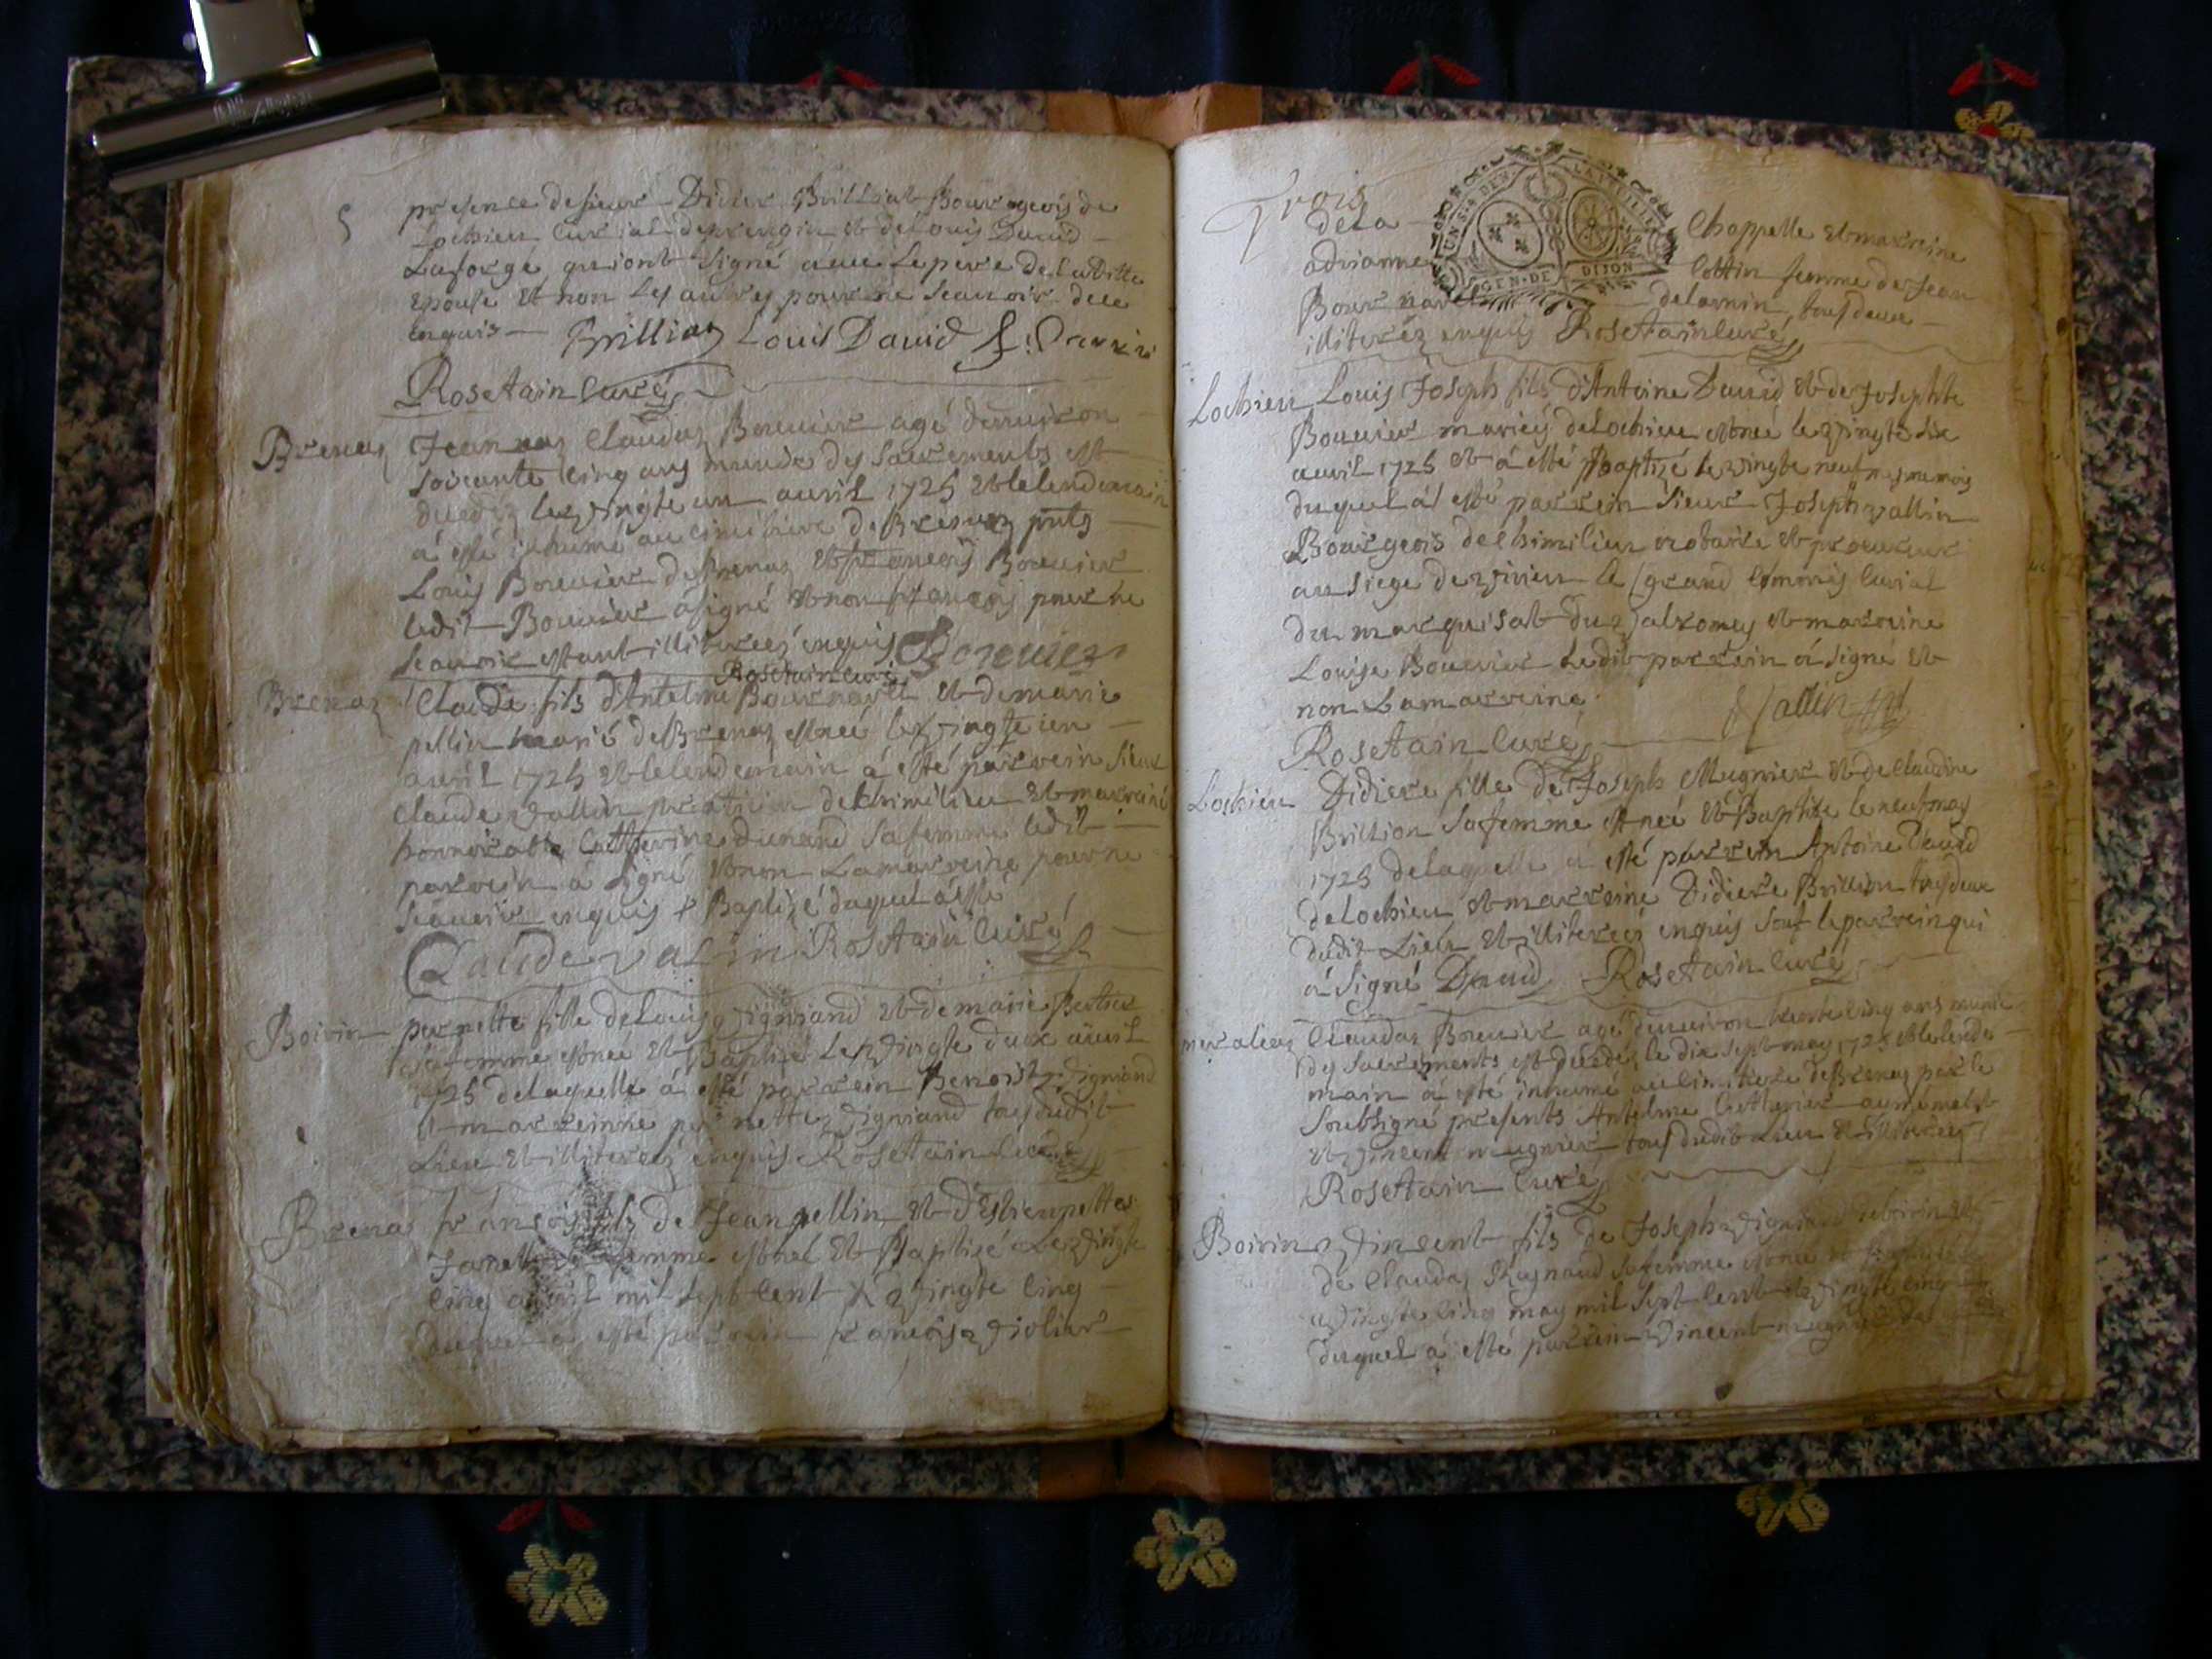 presence de sieur Didier Brilliat Bourgeois de
Lochieu curial et de Louis David
Laforge qui ont signé avec le pere de la ditte
epouse et non les autres pour ne scavoir de ce
enquis Brilliat Louis David
Rosetain curé
Brenaz Jean Claudaz Bouvier agé denuiron
soixante cinq ans munie des sacrements est
decedez le vingte un avril 1725 et le lendemain
à esté inhumé au cimitiere de Brenaz pnts
Louis Bouvier de Brenaz et francois Bouvier
ledit Bouvier à signé et non francois pour ne
scavoir estant illiterées enquis Bouvier
Rosetain curé
Brenaz Claude fils d'Antelme Bournarel et de marie
pellin marié de Brenaz est née le vingte un
avril 1725 et le lendemain à esté parrein sieur
Claude vallin praticien de chimilieu et marreine
honnorable Catherine Dunand sa femme ledit
parrein à signé et non la marreine pour ne
scavoir enquis + Baptizé duquel à esté
Claude valin Rosetain curé
Boirin pernette fille de Louis vigniand et de marie Bertier
sa femme est née et Baptizé le vingte deux avril
1725 de laquelle à esté parrein Benoist vigniand
marreinne pernette vigniand tous dudit
Lieu et illiterées enquis Rosetain curé
Brena francois fils de Jean pellin et d'Estiennettes
femme est né et Baptizé le vingte
cinq avril mil sept cent vingte cinq
duquel à esté parrein francois violier
Trois
de la Chappelle et marreine
adrianne Cottin femme de Jean
Bournarel tous deux
illiterez enquis Rosetain curé
GEN. DE DIJON
Lochieu Louis Joseph fils d'Antoine David et de Josephte
Bouvier mariéz de Lochieu est née le vingte six
avril 1725 et à esté Baptizé le vingte neuf mesme mois
duquel à esté parrein sieur Joseph vallin
Bourgeois de chimilieu notaire et procureur
au siege de virieu le grand commis curial
du marquisat du valromey et marreine
Louise Bouvier ledit parrein à signé et
non la marreine Vallin
Rosetain curé
Lochieu Didiere fille de Joseph Mugnier et de claudine
Brillion sa femme est née et Baptize le neuf may
1725 de laquelle à esté parrein Antoine David
de Lochieu et marreine Didiere Brillion tous deux
dudit Lieu et illiterées enquis sauf le parrein qui
à signé David Rosetain curé
Claudaz Bouvier agé denuiron trente cinq ans munie
des sacrements est decedéz le dix sept may 1725 et le lende
main à esté inhumé au cimitiere de Brenaz par le
soubsigné presents Antelme
et vincent mugnier tous dudit Lieu et illiterées
Rosetain curé
Boirin vincent fils de Joseph vigniand de boirin et
de Claudaz Reynaud sa femme est née et baptizé le
vingte cinq may mil sept cent vingte cinq
duquel à esté parrein vincent mugnier